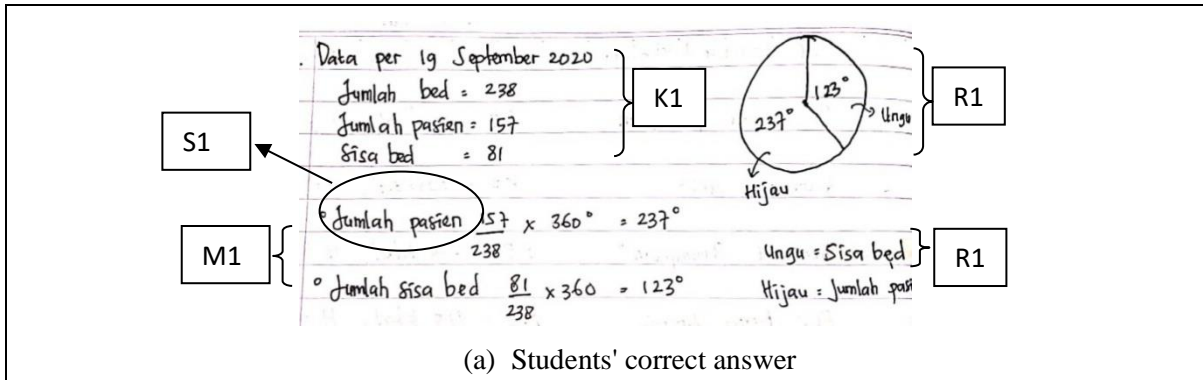 . Data per 19 September 2020
Jumlah bed = 238
Jumlah pasien = 157
Sisa bed = 81
K1
123°
237°
Ungu
Hijau
R1
S1
° Jumlah pasien 157/238 x 360° = 237°
M1
° Jumlah sisa bed 81/238 x 360 = 123°
Ungu = Sisa bed
Hijau = Jumlah pasi
R1
(a) Students' correct answer